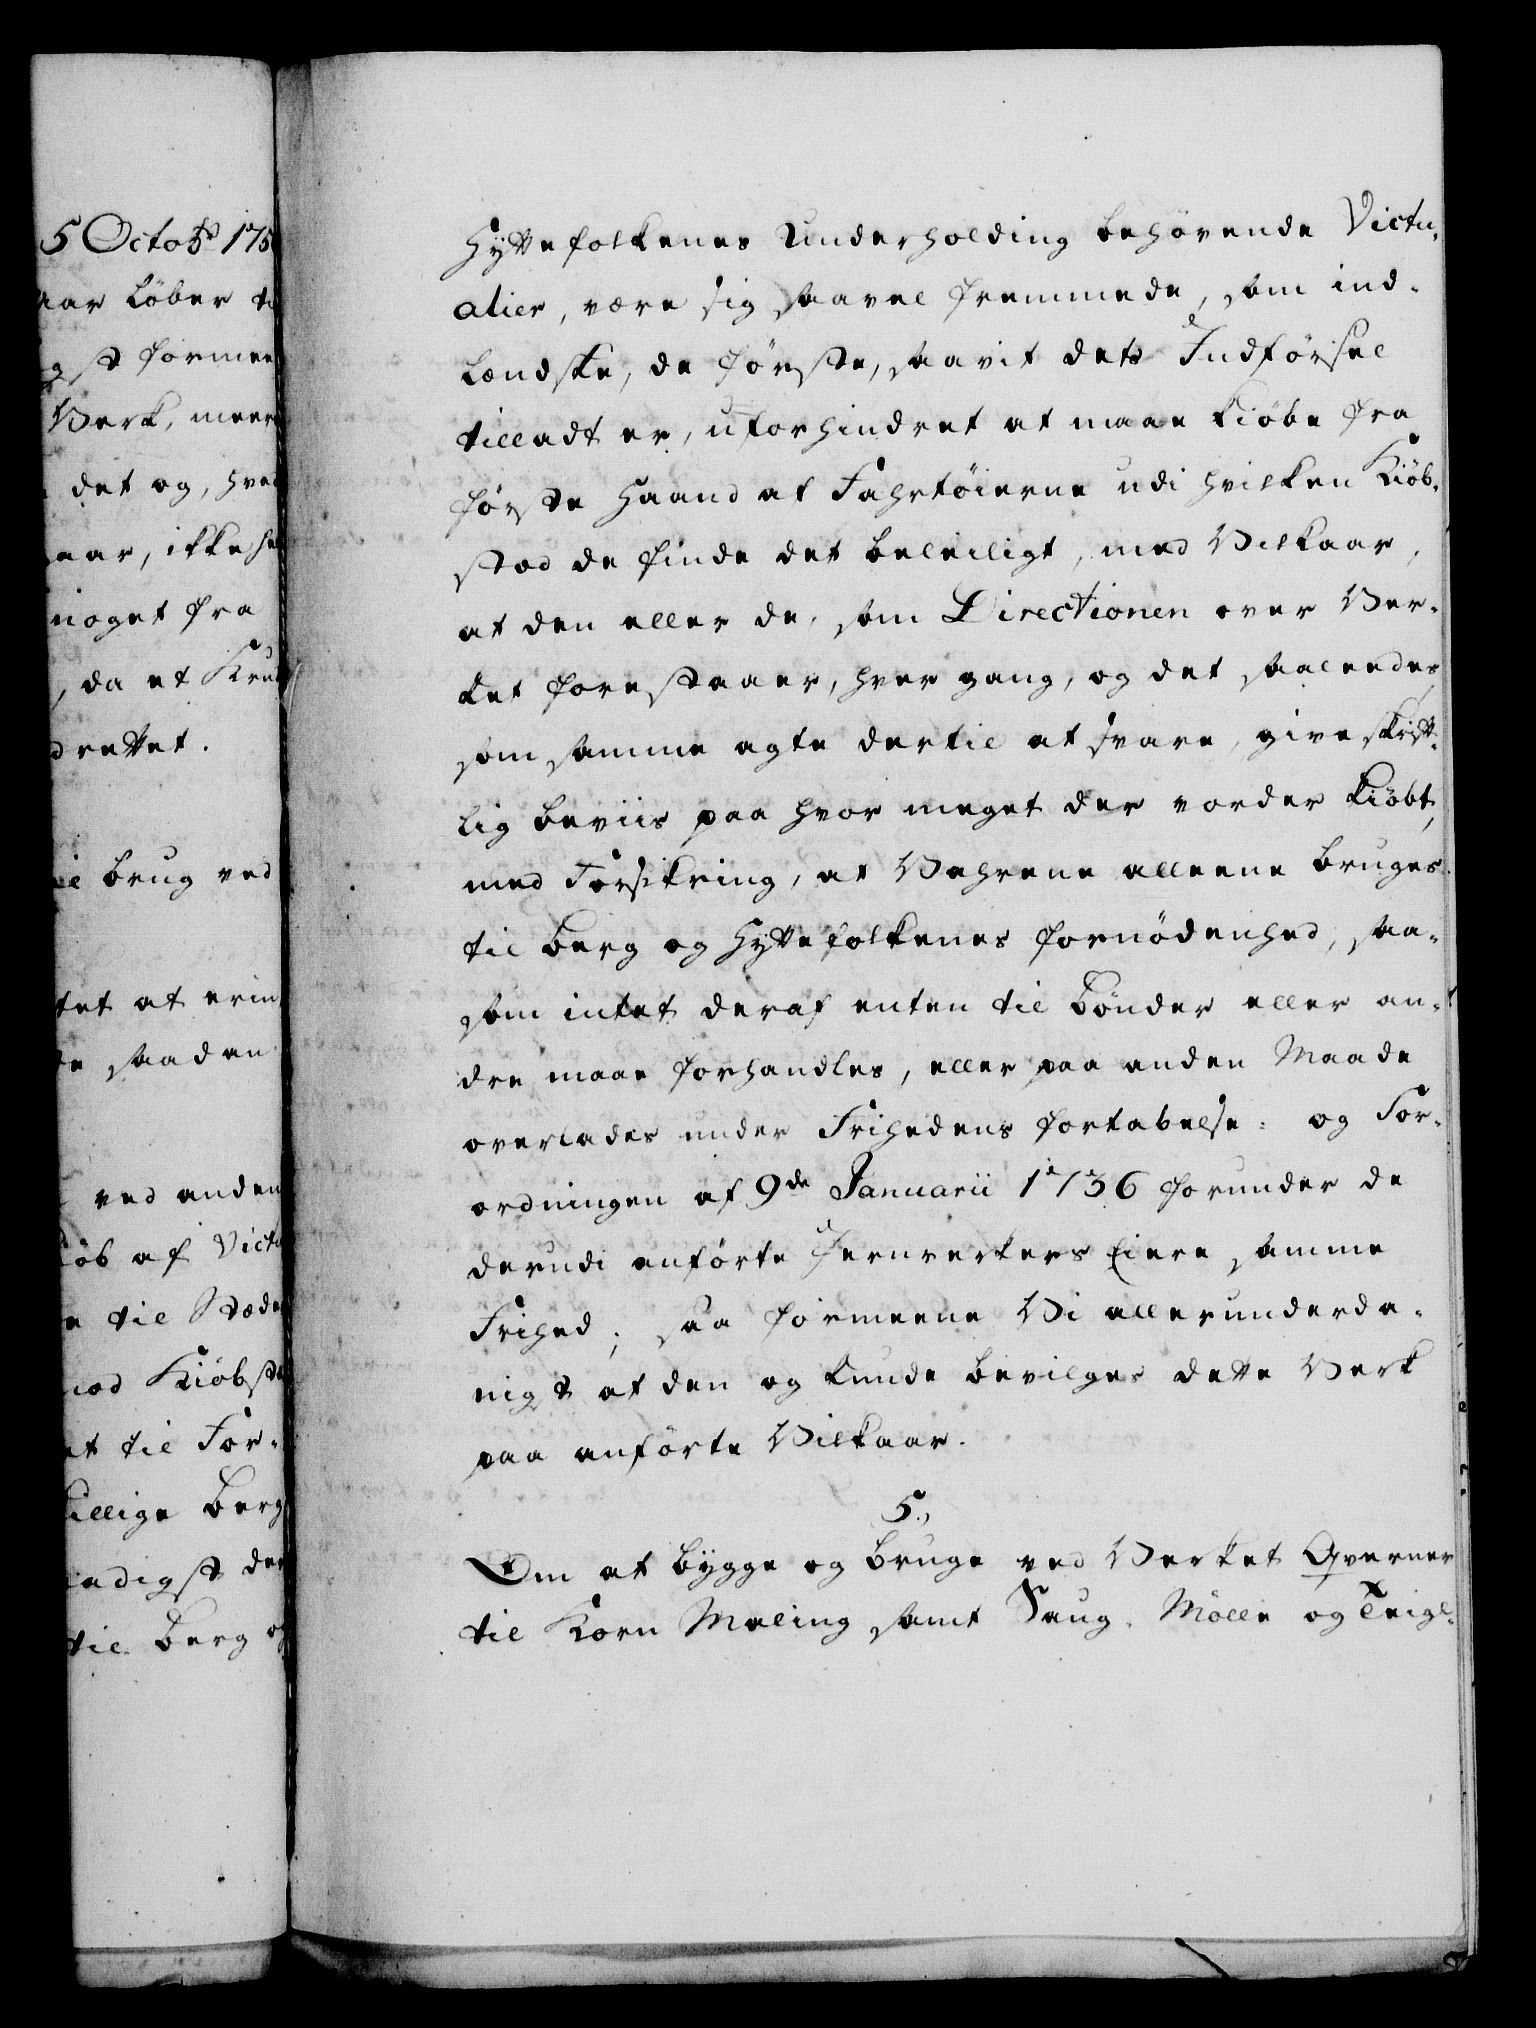 5 Octobr 175
aar løber ti
gst formee
Verk, meere
det og, hved
aar, ikke he
noget fra
, da et Krud
drettet.
il brug ved
tet at erin
e saadan
ved anden
iøb af Victu
e til Stæde
mod Kiøbst
et til For-
illige Berg
aadigst de
til Berg og
Hyttefolkenes Underholding behøvende Victu-
alier, være sig saavel fremmede, som ind-
lændske, de første, saavit dets Indførsel
tilladt er, uforhindret at maae kiøbe fra
første Haand af Fahrtøierne udi hvilken Kiøb-
stad de finde det beleiligt, med Vilkaar,
at den eller de, som Directionen over Ver-
ket forestaaer, hver gang, og det saaleedes,
som samme agte dertil at svare, give skrift-
lig beviis paa hvor meget der vorder kiøbt,
med Forsikring, at Vahrene alleene bruges
til Berg og Hyttefolkenes fornødenhed, saa-
som intet deraf enten til Bønder eller an-
dre maae forhandles, eller paa anden Maade
overlades under Frihedens fortabelse: og For-
ordningen af 9de Januarii 1736 forunder de
derudi anførte Jernverkers Eiere samme
Frihed; saa formeene Vi allerunderda-
nigst at den og kunde bevilges dette Verk
paa anførte Vilkaar.
5.,
Om at bygge og bruge ved Verket Qverner
til Korn Maling samt Saug-Mølle og Teigl-